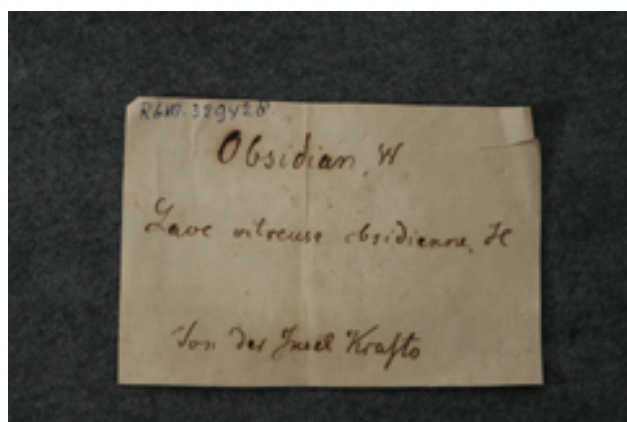 RGM 329428
Obsidian, W
Lave vitreuse obsidienne. H
Von der Insel Krafto